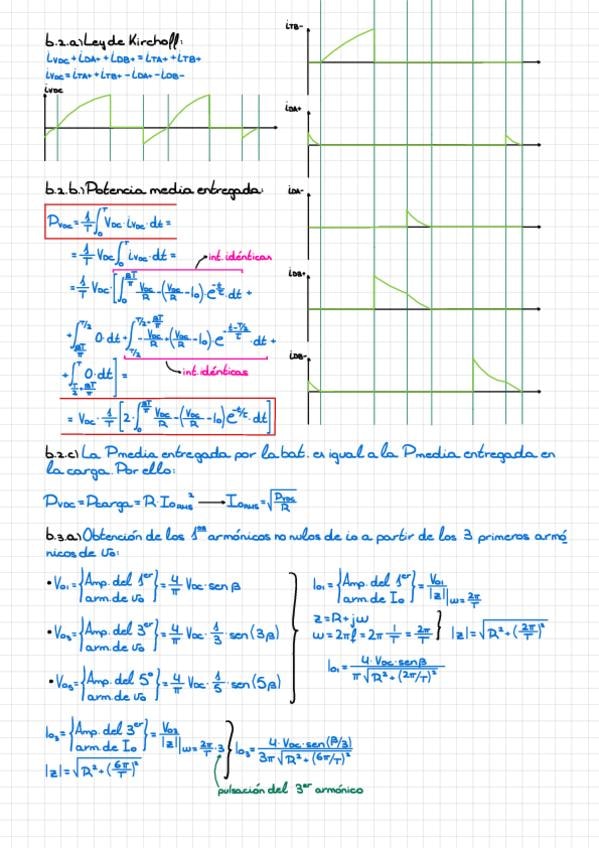 b.2.a) Ley de Kirchoff:
iVDC + iDA+ + iDB+ = iTA+ + iTB+
iVDC = iTA+ + iTB+ - iDA+ - iDB-
iVDC
iTB-
iDA+
iDA-
iDB+
iDB-
b.2.b) Potencia media entregada:
PVDC = 1/T ∫₀ᵀ VDC · iVDC · dt =
= 1/T VDC ∫₀ᵀ iVDC · dt =
int. idénticas
= 1/T VDC · [∫₀^(βT/π) VDC/R - (VDC/R - I0) · e^(-t/τ) · dt +
+ ∫_(βT/π)^(T/2) 0 · dt + ∫_(T/2)^(T/2+βT/π) -VDC/R + (VDC/R - I0) · e^(-(t-T/2)/τ) · dt +
+ ∫_(T/2+βT/π)^T 0 · dt] =
int. idénticas
= VDC · 1/T [2 · ∫₀^(βT/π) VDC/R - (VDC/R - I0) · e^(-t/τ) · dt]
b.2.c) La Pmedia entregada por la bat. es igual a la Pmedia entregada en
la carga. Por ello:
PVDC = Pcarga = R · IoRMS² → IoRMS = √(PVDC/R)
b.3.a) Obtención de los 1ºs armónicos no nulos de io a partir de los 3 primeros armó
nicos de vo:
• Vo1 = {Amp. del 1er arm. de vo} = 4/π VDC · sen β
• Vo3 = {Amp. del 3er arm. de vo} = 4/π VDC · 1/3 · sen(3β)
• Vo5 = {Amp. del 5º arm. de vo} = 4/π VDC · 1/5 · sen(5β)
Io1 = {Amp. del 1er arm. de Io} = Vo1/|z| |w=2π/T
z = R + jw
w = 2πf = 2π 1/T = 2π/T
|z| = √(R² + (2π/T)²)
Io1 = 4 · VDC · sen β / π√(R² + (2π/T)²)
Io3 = {Amp. del 3er arm. de Io} = Vo3/|z| |w=2π/T · 3
|z| = √(R² + (6π/T)²)
Io3 = 4 · VDC · sen(β/3) / 3π√(R² + (6π/T)²)
pulsación del 3er armónico